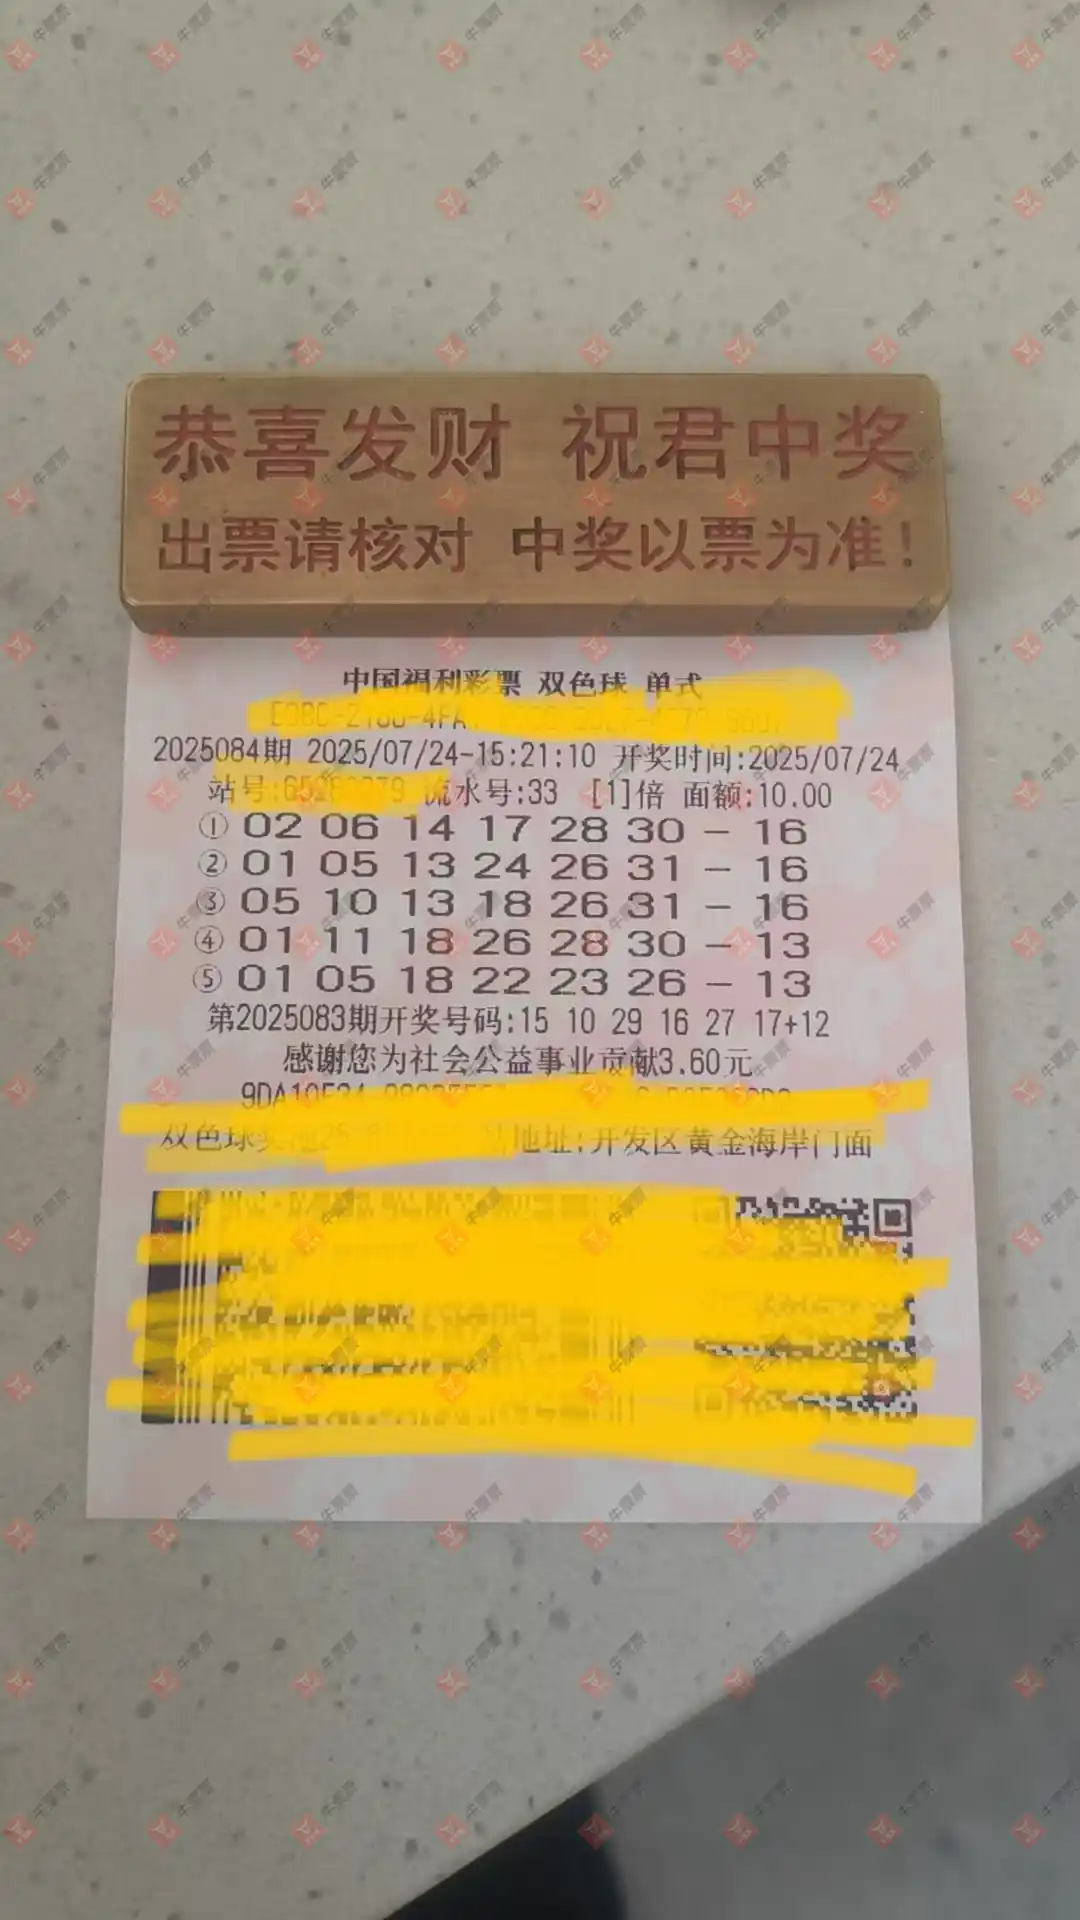 恭喜发财 祝君中奖
出票请核对 中奖以票为准!
中国福利彩票 双色球 单式
2025084期 2025/07/24-15:21:10 开奖时间:2025/07/24
站号: 流水号:33 [1]倍 面额:10.00
① 02 06 14 17 28 30 - 16
② 01 05 13 24 26 31 - 16
③ 05 10 13 18 26 31 - 16
④ 01 11 18 26 28 30 - 13
⑤ 01 05 18 22 23 26 - 13
第2025083期开奖号码:15 10 29 16 27 17+12
感谢您为社会公益事业贡献3.60元
双色球 地址:开发区黄金海岸门面
牛票票